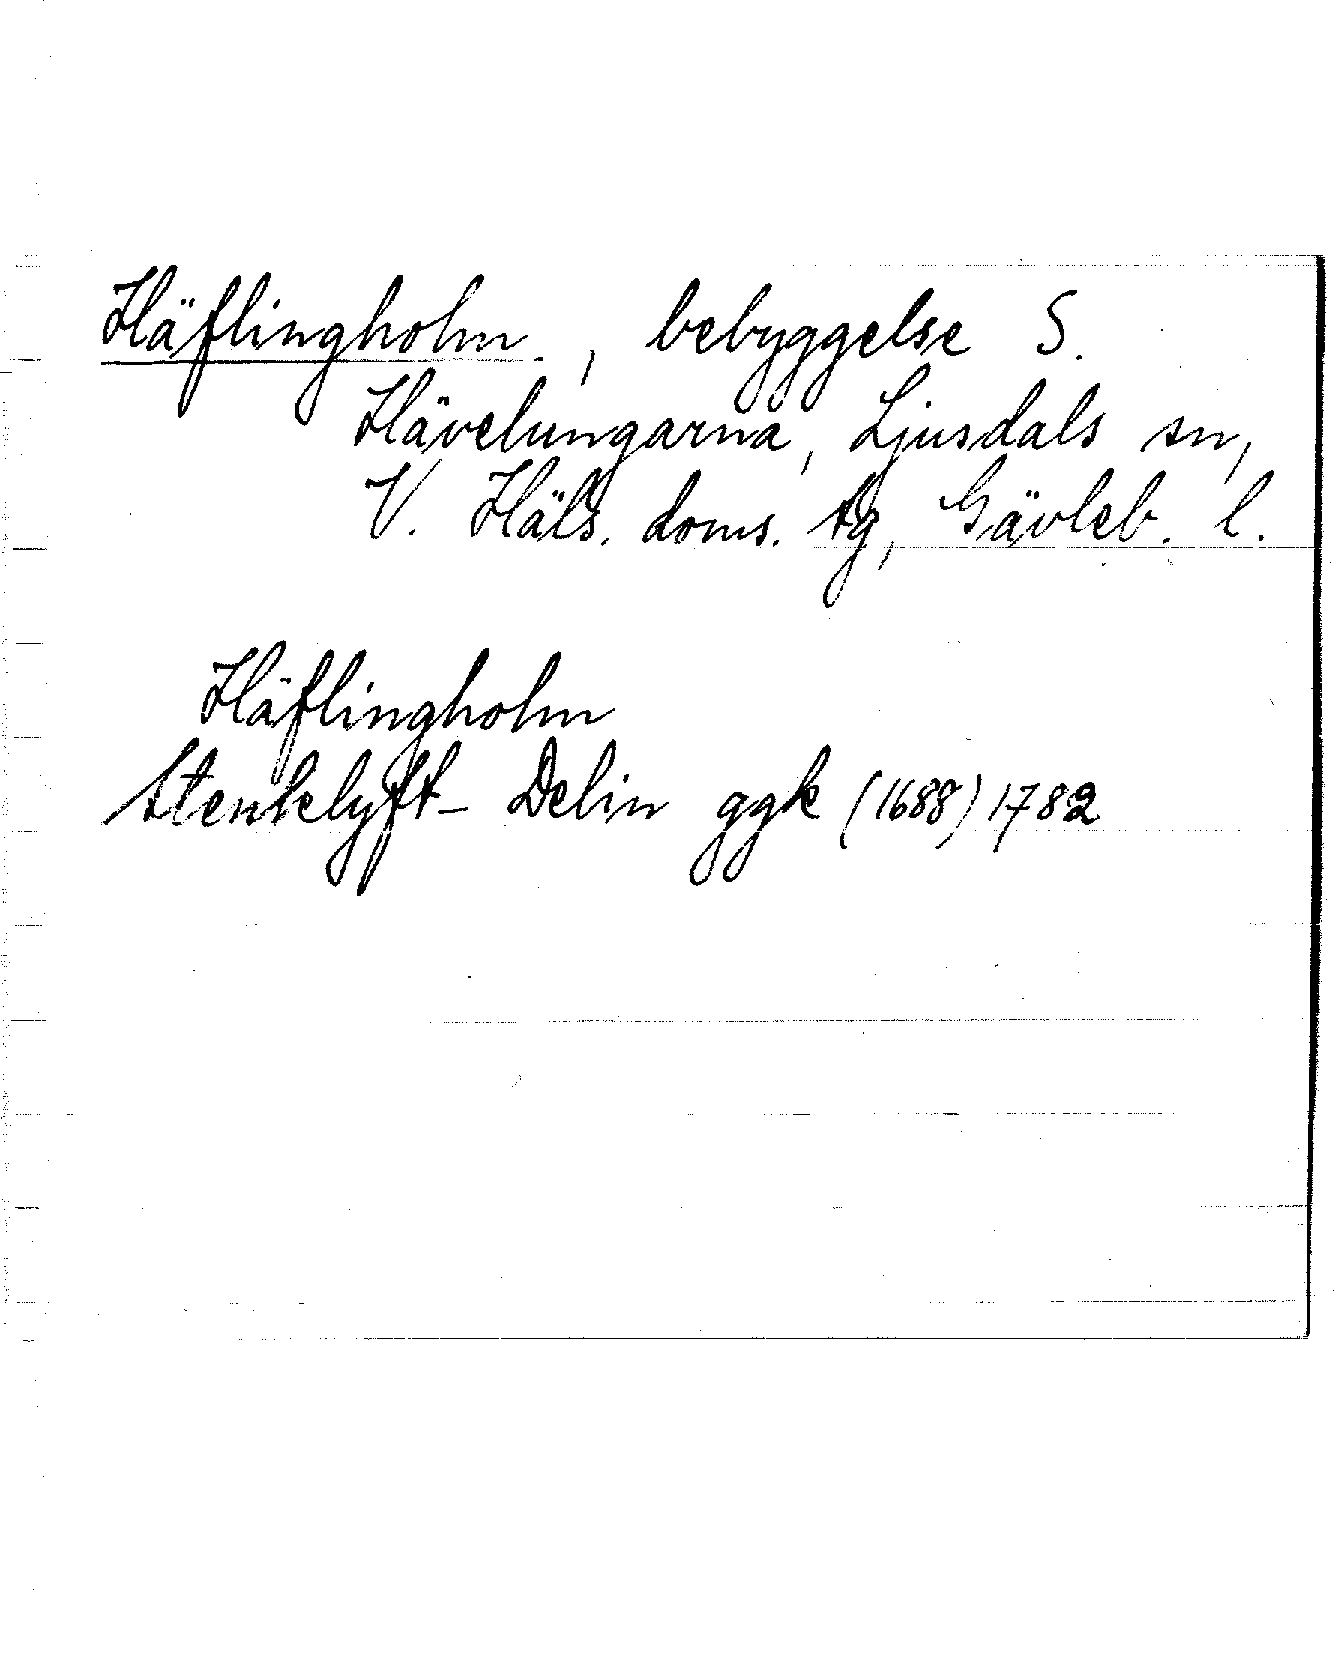 Häflingholm., bebyggelse S.
Hävelungarna, Ljusdals sn,
V. Häls. doms. tg, Gävleb. l.
Häflingholm
Stenklyft- Delin ggk (1688) 1782